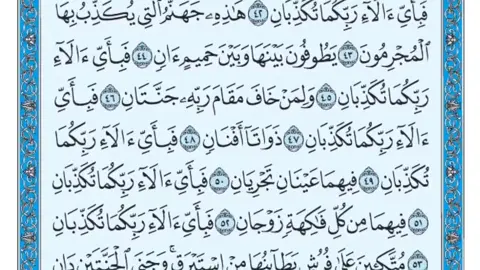 فَبِأَيِّ ءَالَآءِ رَبِّكُمَا تُكَذِّبَانِ ٤٢ هَٰذِهِۦ جَهَنَّمُ ٱلَّتِي يُكَذِّبُ بِهَا
ٱلْمُجْرِمُونَ ٤٣ يَطُوفُونَ بَيْنَهَا وَبَيْنَ حَمِيمٍ ءَانٍ ٤٤ فَبِأَيِّ ءَالَآءِ
رَبِّكُمَا تُكَذِّبَانِ ٤٥ وَلِمَنْ خَافَ مَقَامَ رَبِّهِۦ جَنَّتَانِ ٤٦ فَبِأَيِّ
ءَالَآءِ رَبِّكُمَا تُكَذِّبَانِ ٤٧ ذَوَاتَآ أَفْنَانٍ ٤٨ فَبِأَيِّ ءَالَآءِ رَبِّكُمَا
تُكَذِّبَانِ ٤٩ فِيهِمَا عَيْنَانِ تَجْرِيَانِ ٥٠ فَبِأَيِّ ءَالَآءِ رَبِّكُمَا تُكَذِّبَانِ
٥١ فِيهِمَا مِن كُلِّ فَٰكِهَةٍ زَوْجَانِ ٥٢ فَبِأَيِّ ءَالَآءِ رَبِّكُمَا تُكَذِّبَانِ
٥٣ مُتَّكِـِٔينَ عَلَىٰ فُرُشٍۭ بَطَآئِنُهَا مِنْ إِسْتَبْرَقٍ ۚ وَجَنَى ٱلْجَنَّتَيْنِ دَانٍ